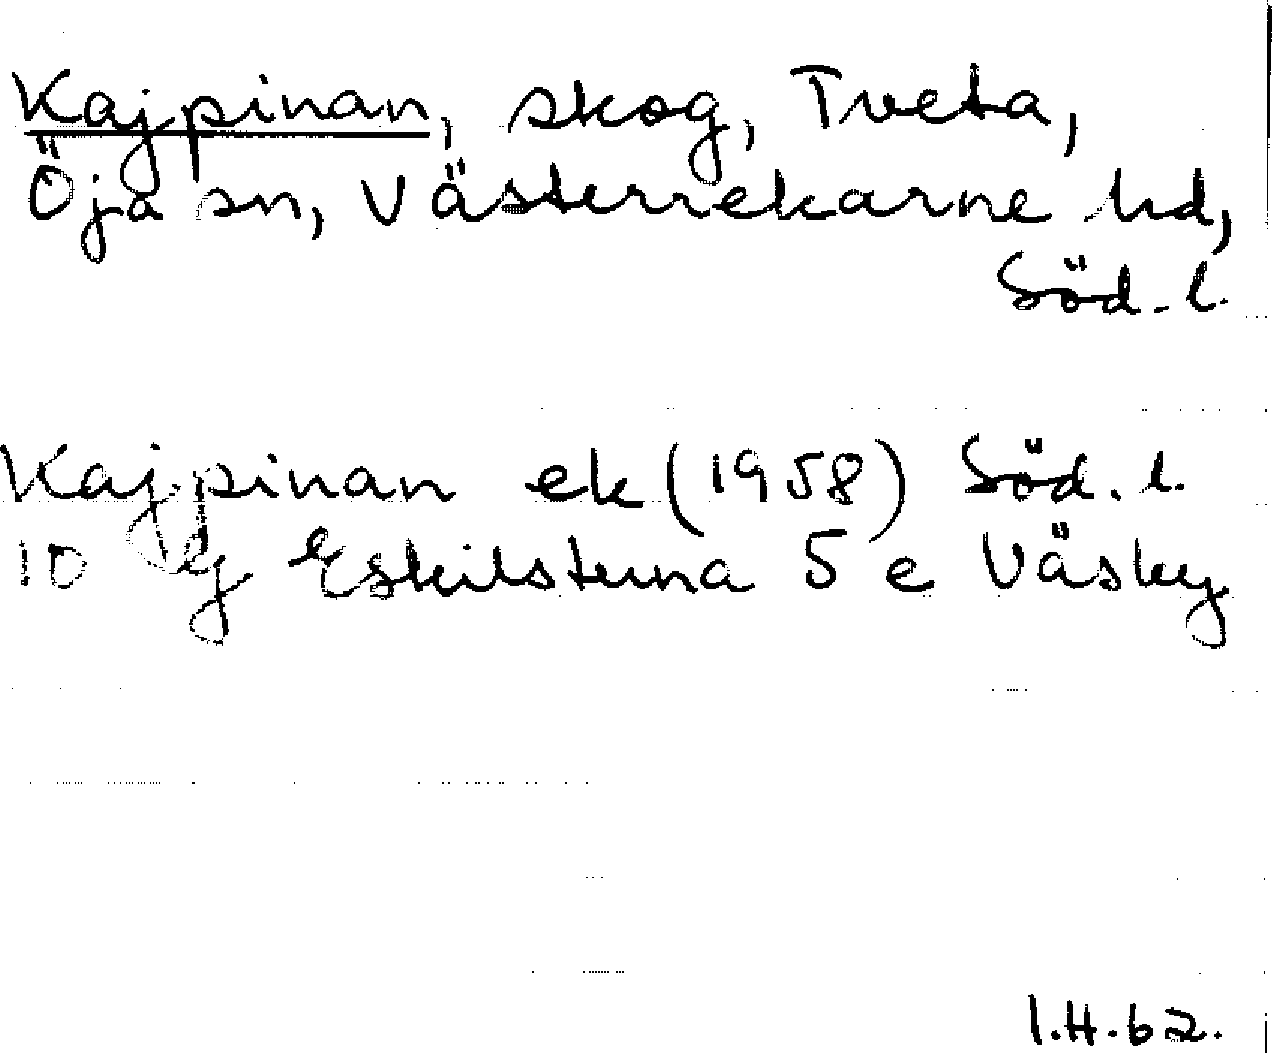 Kajpinan, skog, Tveta,
Öja sn, Västerrekarne hd,
Söd. l.
Kajpinan ek (1958) Söd. l.
10 g Eskilstuna 5 e Väsby
I.H.62.